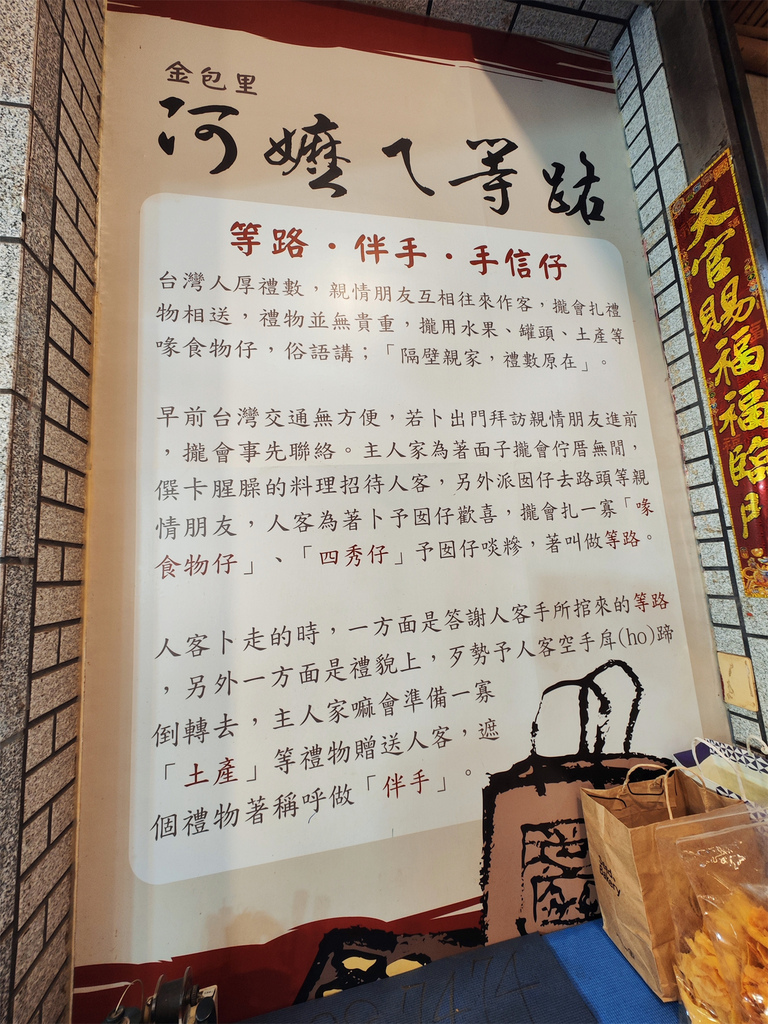 金包里
阿嬤ㄟ等路
等路·伴手·手信仔
台灣人厚禮數，親情朋友互相往來作客，攏會扎禮
物相送，禮物並無貴重，攏用水果、罐頭、土產等
喙食物仔，俗語講；「隔壁親家，禮數原在」。
早前台灣交通無方便，若卜出門拜訪親情朋友進前
，攏會事先聯絡。主人家為著面子攏會佇厝無閒，
僎卡腥臊的料理招待人客，另外派囡仔去路頭等親
情朋友，人客為著卜予囡仔歡喜，攏會扎一寡「喙
食物仔」、「四秀仔」予囡仔啖糝，著叫做等路。
人客卜走的時，一方面是答謝人客手所捾來的等路
，另外一方面是禮貌上，歹勢予人客空手戽(ho)蹄
倒轉去，主人家嘛會準備一寡
「土產」等禮物贈送人客，遮
個禮物著稱呼做「伴手」。
天官賜福福臨門